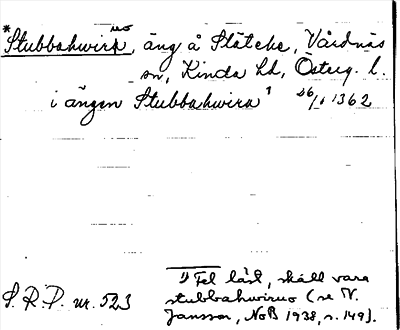 uo
*Stubbahwira, äng å Slätcke, Vårdnäs
sn, Kinda hd, Österg. l.
i ängen Stubbahwira¹ 26/1 1362
S. R. P. nr. 523
1) Fel läst, skall vara
stubbahwiruo (se V.
Jansson, NoB 1938, s. 149).